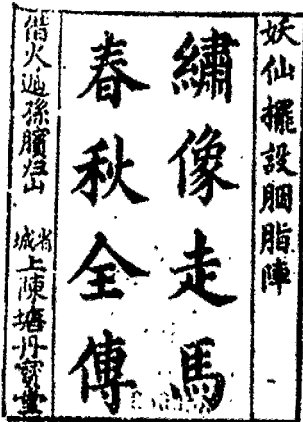 妖仙擺設胭脂陣
繡像走馬
春秋全傳
偕火遁孫臏归山
省城上陳塘丹寶堂